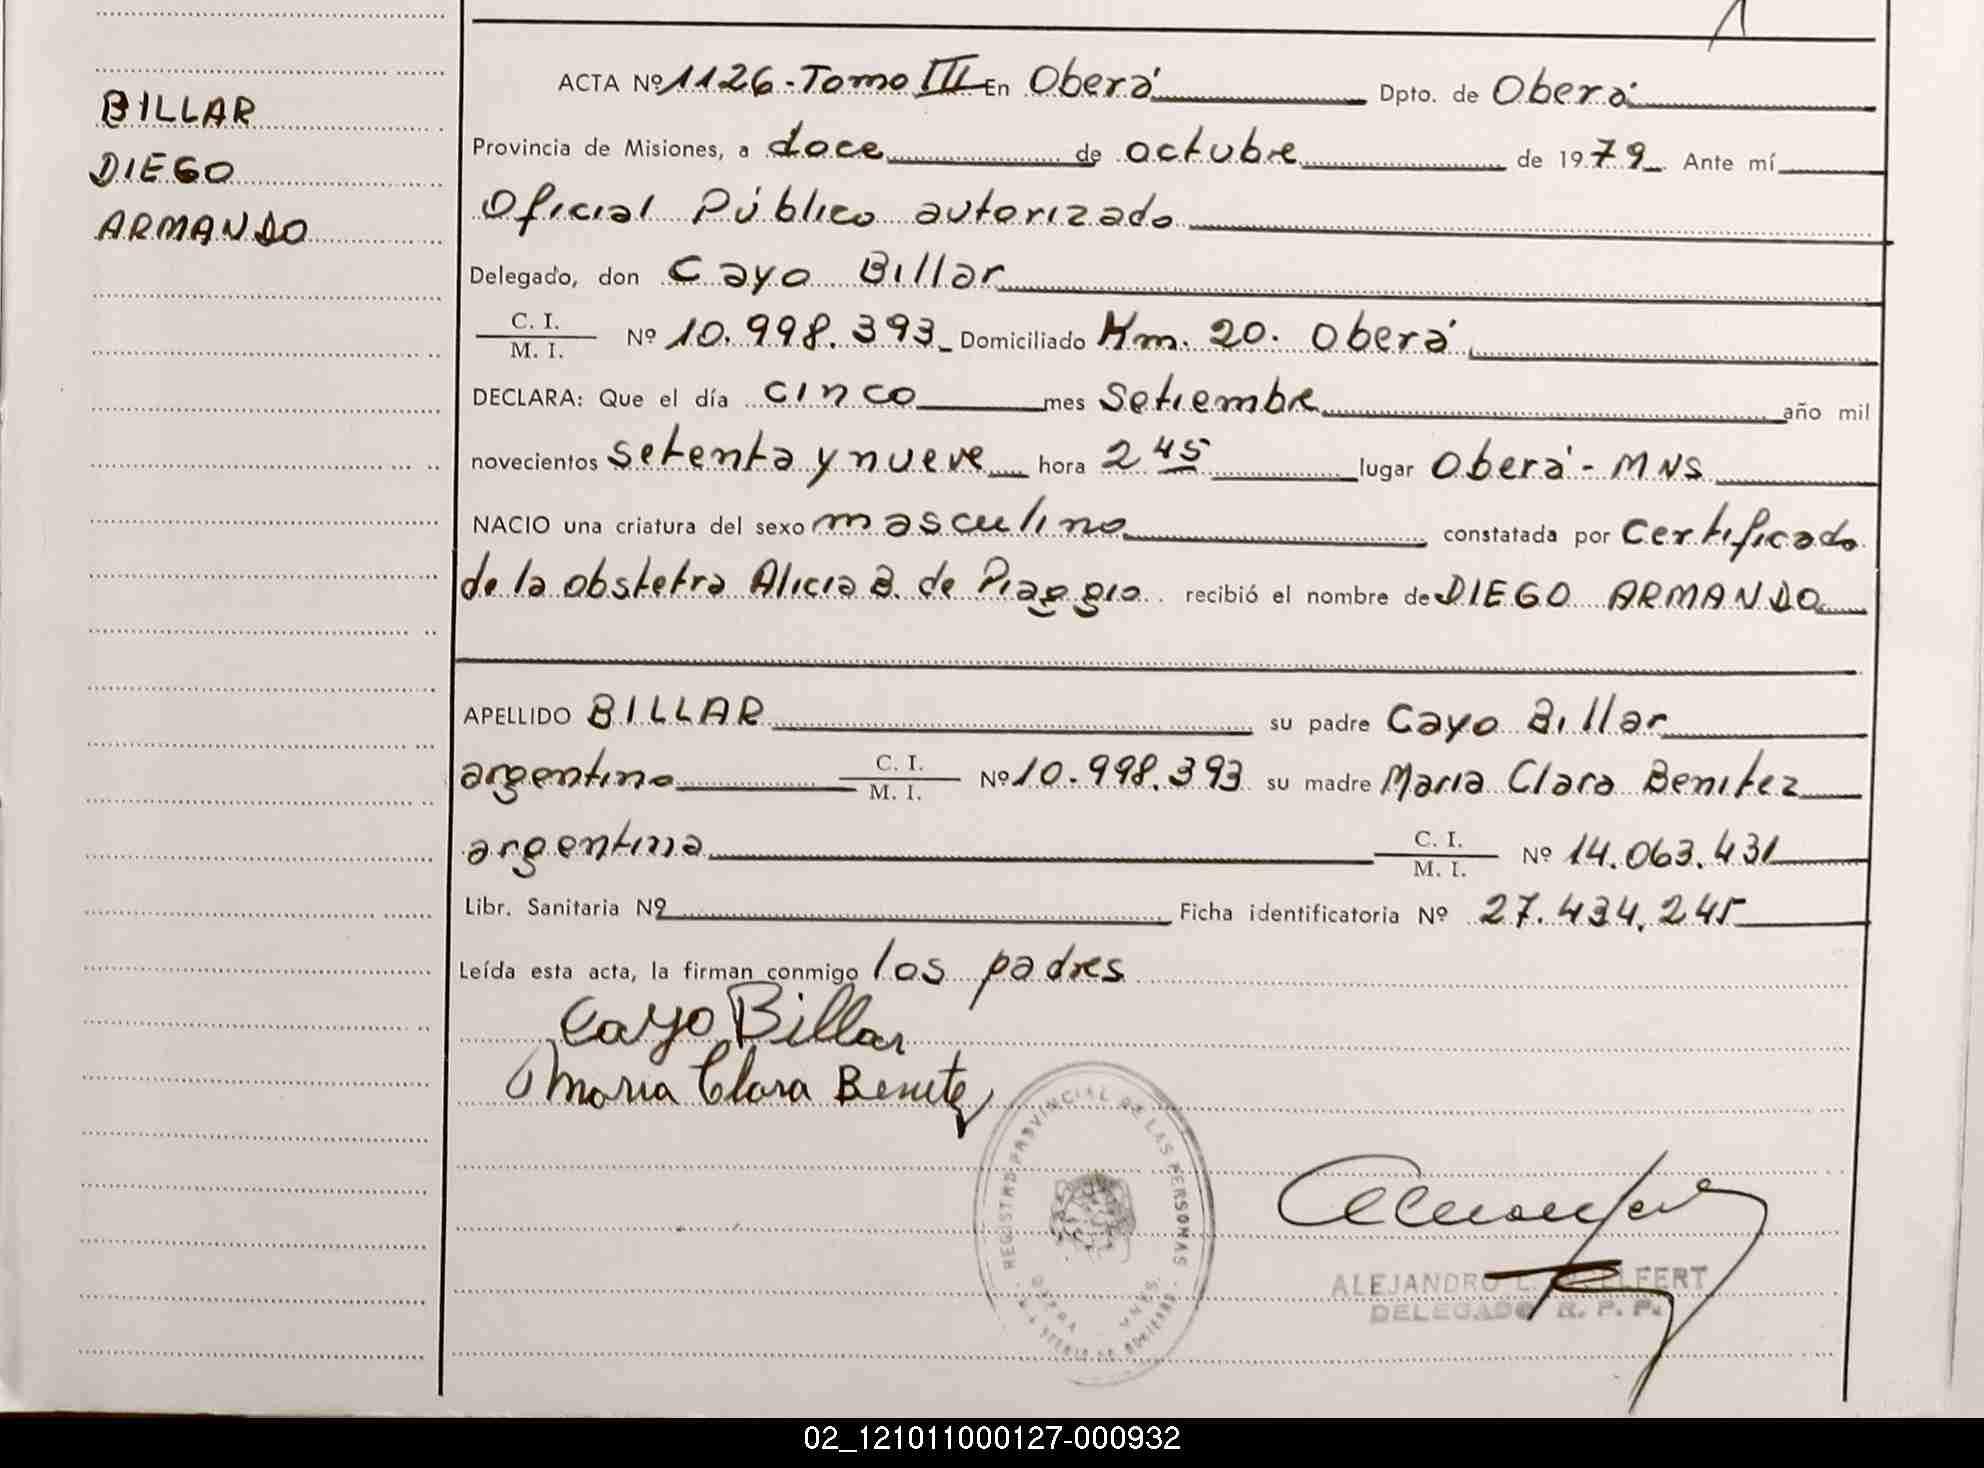 BILLAR
DIEGO
ARMANDO
ACTA Nº 1126-Tomo III En Oberá Dpto. de Oberá
Provincia de Misiones, a doce de octubre de 1979 Ante mí
Oficial Público autorizado
Delegado, don Cayo Billar
C. I.
M. I. Nº 10.998.393 Domiciliado Km. 20. Oberá
DECLARA: Que el día cinco mes Setiembre año mil
novecientos setenta y nueve hora 2 45 lugar Oberá - MNS
NACIO una criatura del sexo masculino constatada por Certificado
de la obstetra Alicia B. de Piaggio recibió el nombre de DIEGO ARMANDO
APELLIDO BILLAR su padre Cayo Billar
argentino C. I. M. I. Nº 10.998.393 su madre Maria Clara Benitez
argentina C. I. M. I. Nº 14.063.431
Libr. Sanitaria Nº Ficha identificatoria Nº 27.434.245
Leída esta acta, la firman conmigo los padres
Cayo Billar
Maria Clara Benitez
REGISTRO PROVINCIAL DE LAS PERSONAS
OBERA MNES.
ALEJANDRO
DELEGADO R. P. P.
02_121011000127-000932